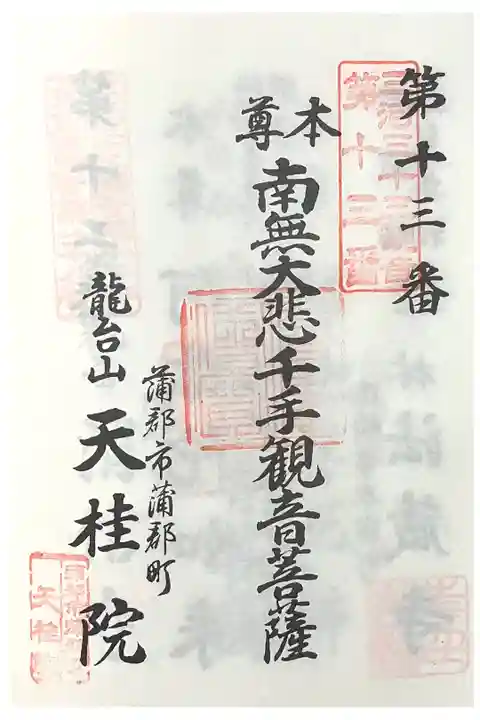 第十三番
第十三番
本尊
南無大悲千手観音菩薩
蒲郡市蒲郡町
龍台山 天桂院